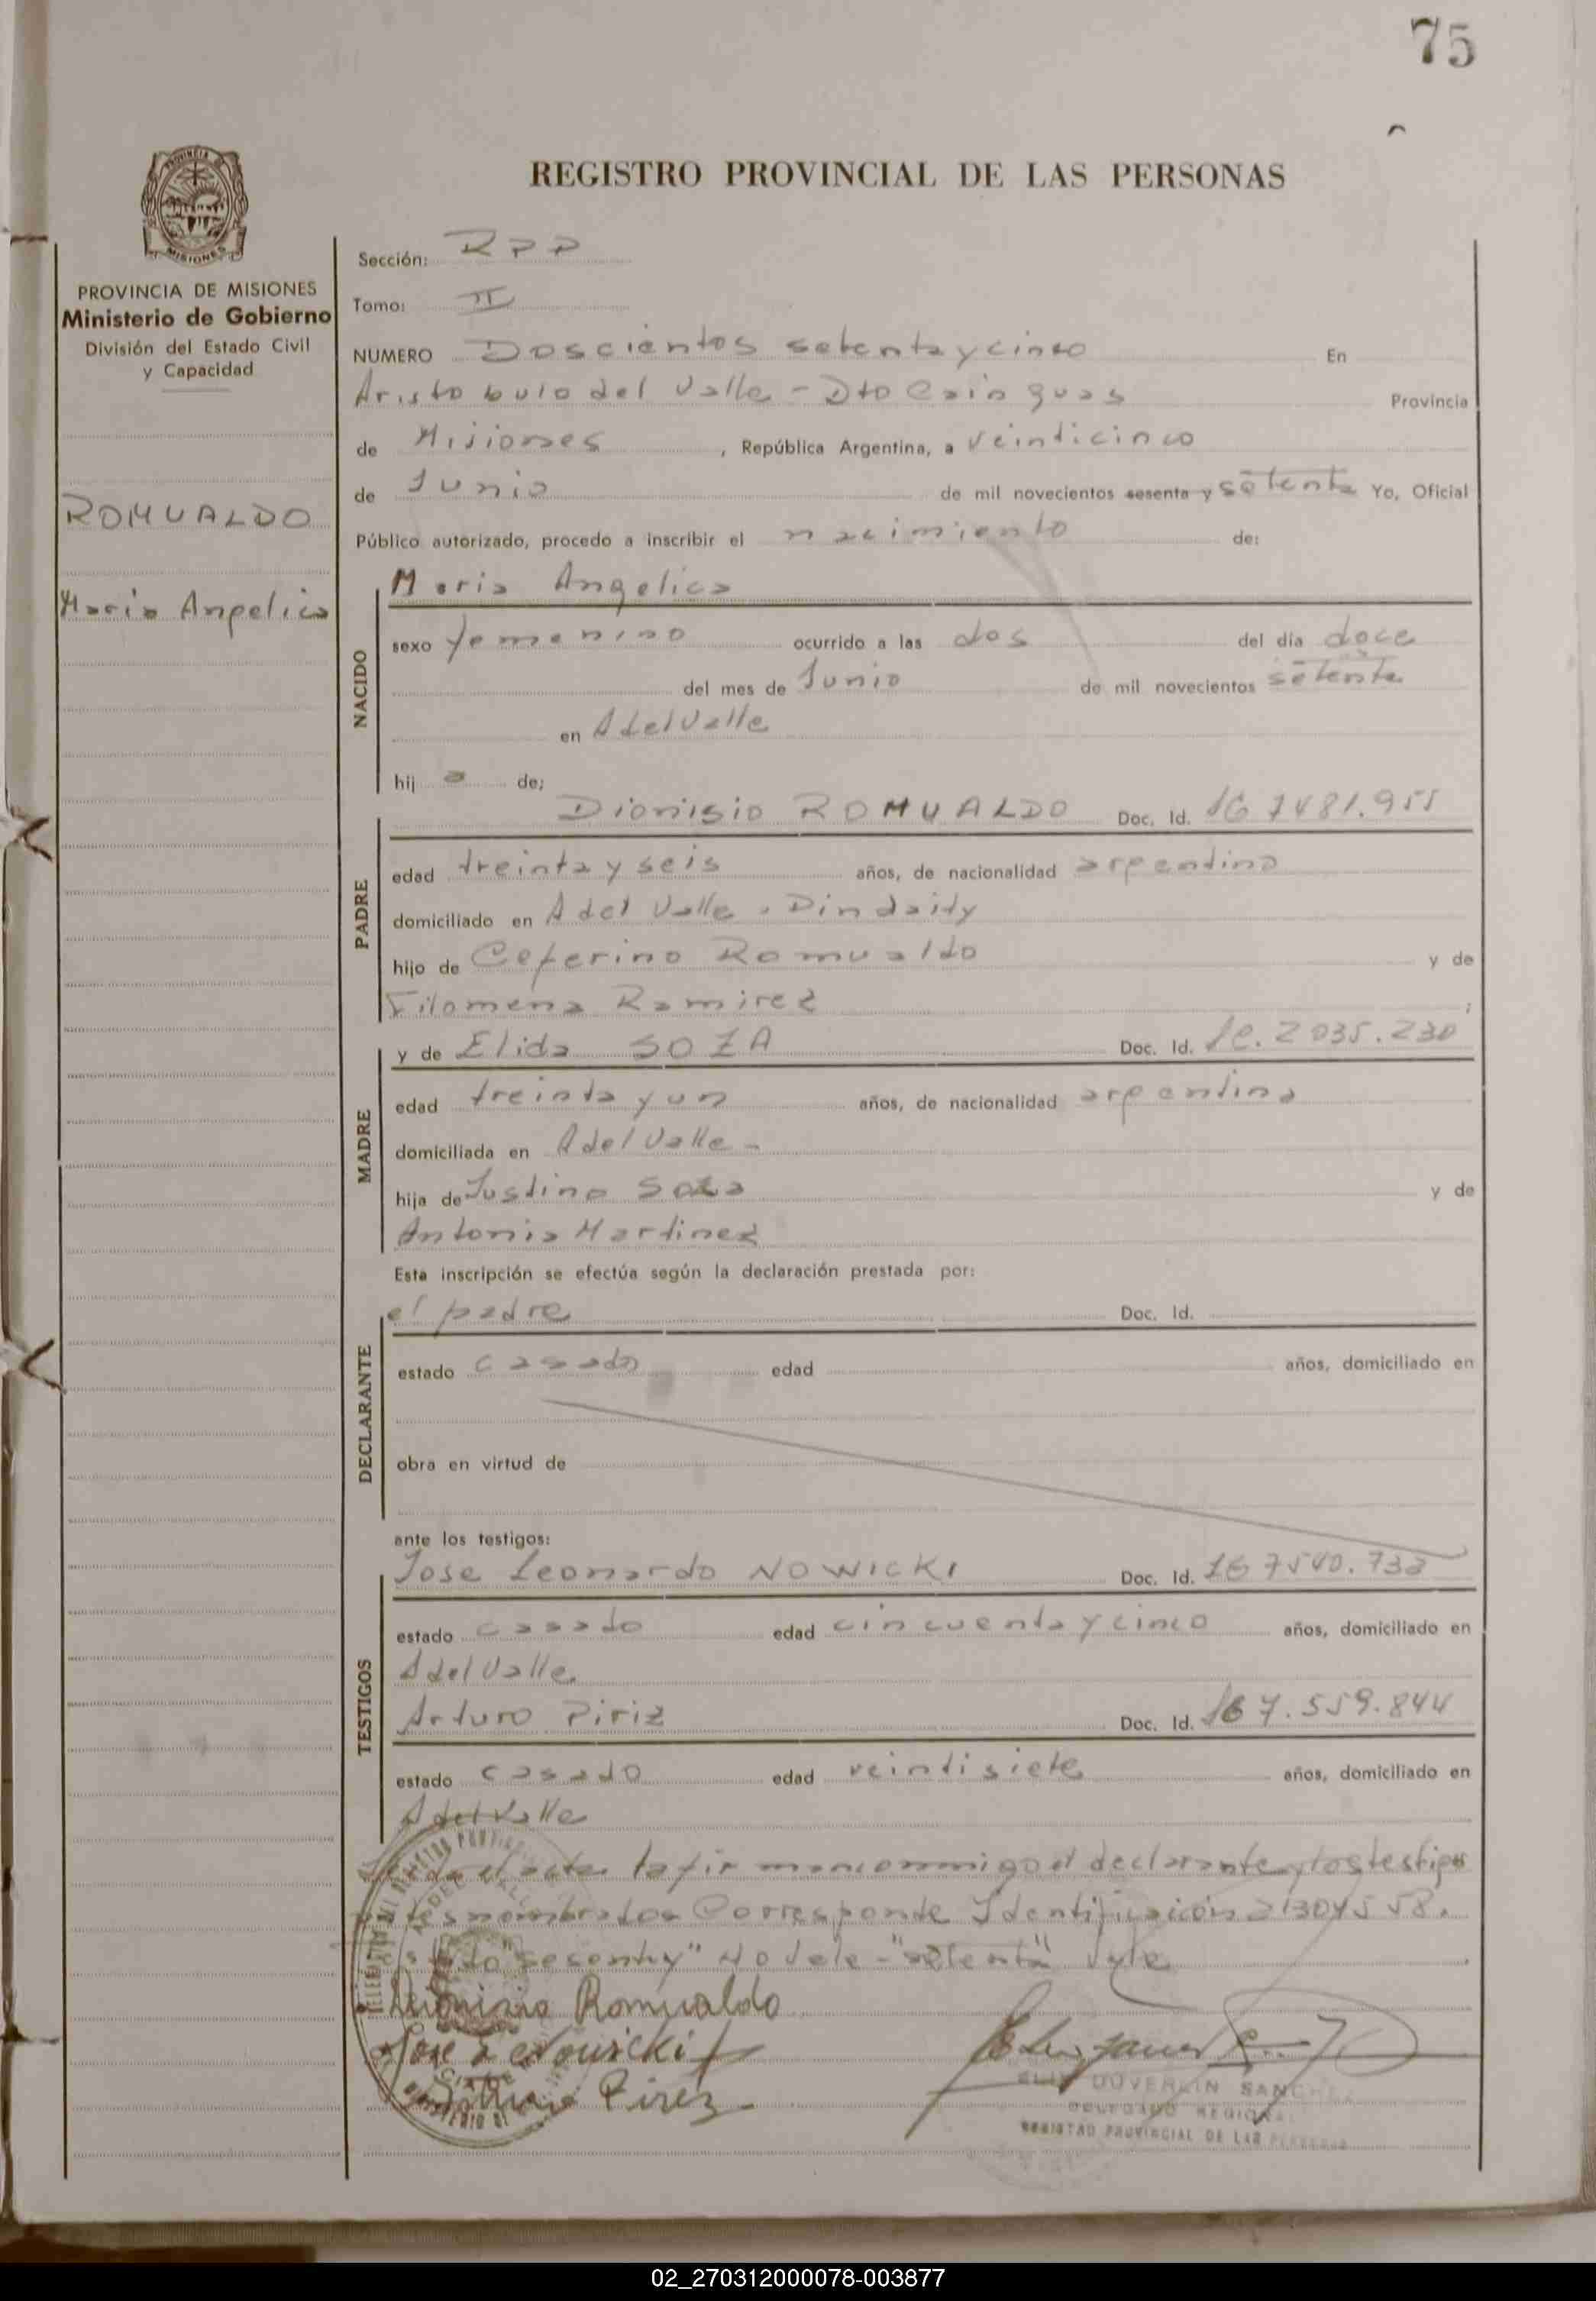 75
REGISTRO PROVINCIAL DE LAS PERSONAS
PROVINCIA DE
MISIONES
PROVINCIA DE MISIONES
Ministerio de Gobierno
División del Estado Civil
y Capacidad
ROMUALDO
Maria Angelica
Sección: RPP
Tomo: II
NUMERO Doscientos setenta y cinco En
Aristobulo del Valle - Dto Cainguas Provincia
de Misiones , República Argentina, a veinticinco
de Junio de mil novecientos sesenta y setenta Yo, Oficial
Público autorizado, procedo a inscribir el nacimiento de:
NACIDO
Maria Angelica
sexo femenino ocurrido a las dos del día doce
del mes de Junio de mil novecientos setenta
en A del Valle
hij a de;
PADRE
Dionisio ROMUALDO Doc. Id. 7481.955
edad treinta y seis años, de nacionalidad argentina
domiciliado en A del Valle
hijo de Ceferino Romualdo y de
Filomena Ramirez ;
MADRE
y de Elida SOZA Doc. Id. 2035.230
edad treinta y un años, de nacionalidad argentina
domiciliada en A del Valle -
hija de Justino Soza y de
Antonia Martinez
Esta inscripción se efectúa según la declaración prestada por:
DECLARANTE
el padre Doc. Id.
estado casado edad años, domiciliado en
obra en virtud de
ante los testigos:
TESTIGOS
Jose Leonardo NOWICKI Doc. Id.
estado casado edad cincuenta y cinco años, domiciliado en
A del Valle
Arturo Piriz Doc. Id. 7.559.844
estado casado edad veintisiete años, domiciliado en
A del Valle
el declarante y los testigos
nombrados Corresponde Identificación
"sesenta y" No vale - "setenta" Vale
Romualdo
Jose L Nowicki
Pirez
SANCHEZ
DELEGADO REGIONAL
REGISTRO PROVINCIAL DE LAS PERSONAS
02_270312000078-003877